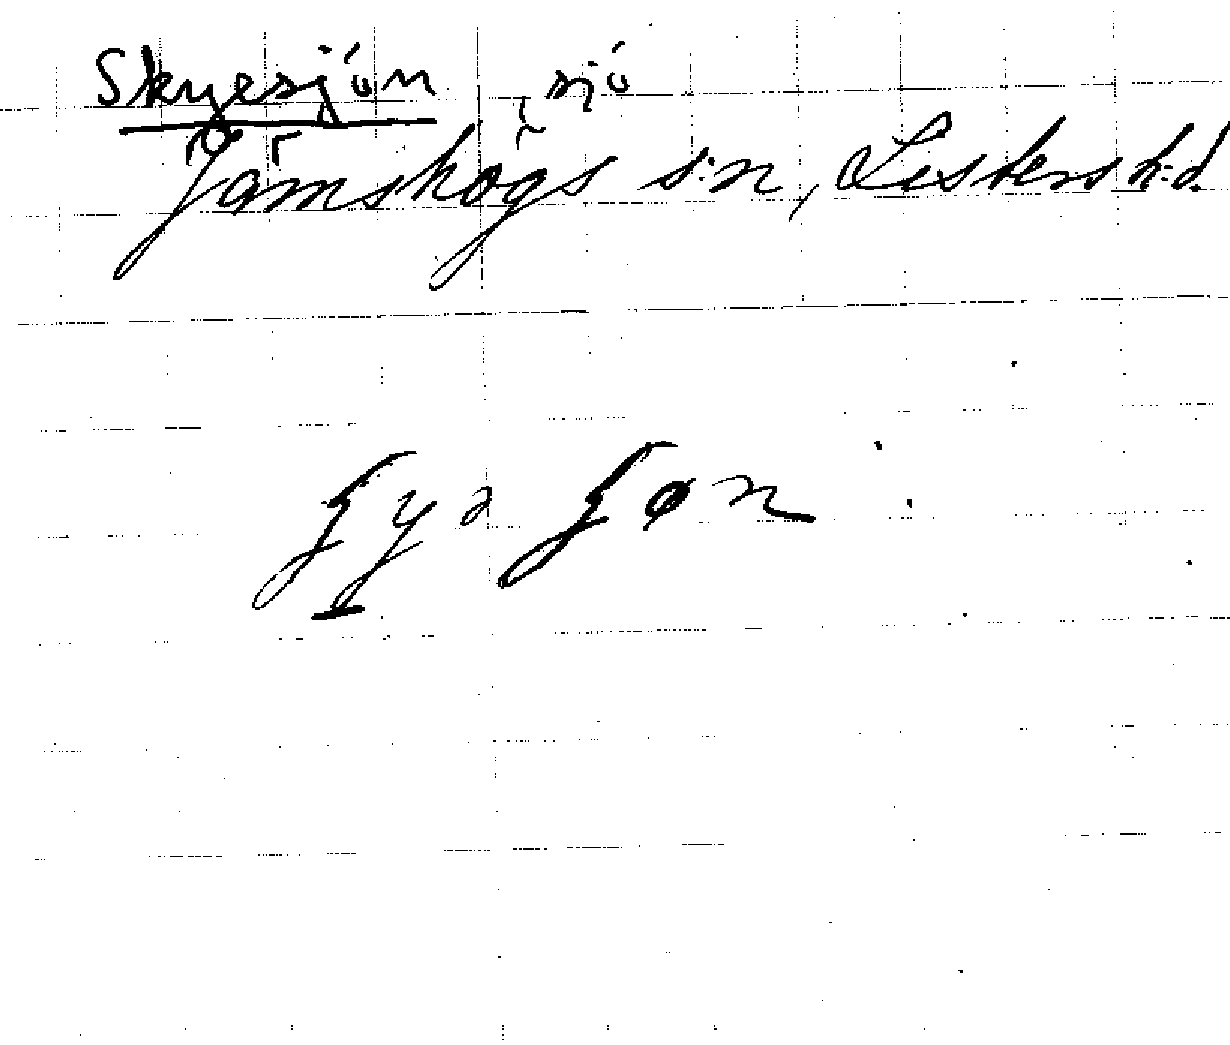 Skyesjön, sjö
Jämshögs s:n, Listers h:d.
ʃyə ʃøn